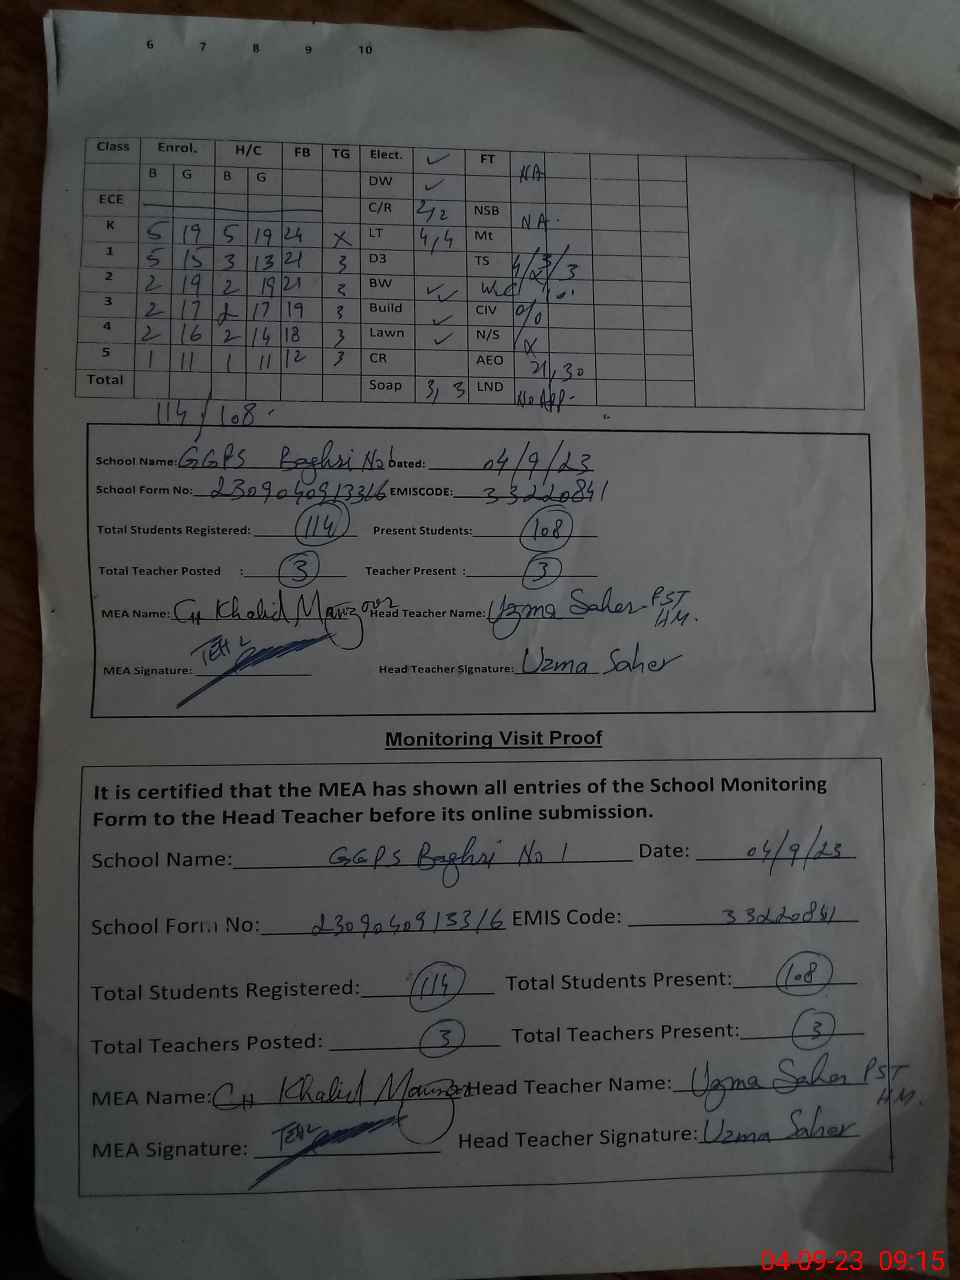 6 7 8 9 10
Class Enrol. H/C FB TG Elect. ✓ FT NA
B G B G DW ✓
ECE C/R 2/2 NSB NA.
K 5 19 5 19 24 x LT 4,4 Mt
1 5 15 3 13 21 3 D3 TS 4/3/3
2 2 19 2 19 21 BW ✓✓
3 2 17 2 17 19 3 Build ✓ CIV 0/0
4 2 16 2 14 18 3 Lawn ✓ N/S x
5 1 11 1 11 12 3 CR AEO 21,30
Total Soap 3, 3 LND No App-
114/108.
School Name: GGPS Baghri No 1 Dated: 04/9/23
School Form No: 2309040913316 EMISCODE: 33220841
Total Students Registered: 114 Present Students: 108
Total Teacher Posted : 3 Teacher Present : 3
MEA Name: CH Khalid Manzoor Head Teacher Name: Uzma Saher PST
HM.
MEA Signature: Head Teacher Signature: Uzma Saher
Monitoring Visit Proof
It is certified that the MEA has shown all entries of the School Monitoring
Form to the Head Teacher before its online submission.
School Name: GGPS Baghri No 1 Date: 04/9/23
School Form No: 2309040913316 EMIS Code: 33220841
Total Students Registered: 114 Total Students Present: 108
Total Teachers Posted: 3 Total Teachers Present: 3
MEA Name: CH Khalid Manzoor Head Teacher Name: Uzma Saher PST
HM.
MEA Signature: Head Teacher Signature: Uzma Saher
04-09-23 09:15